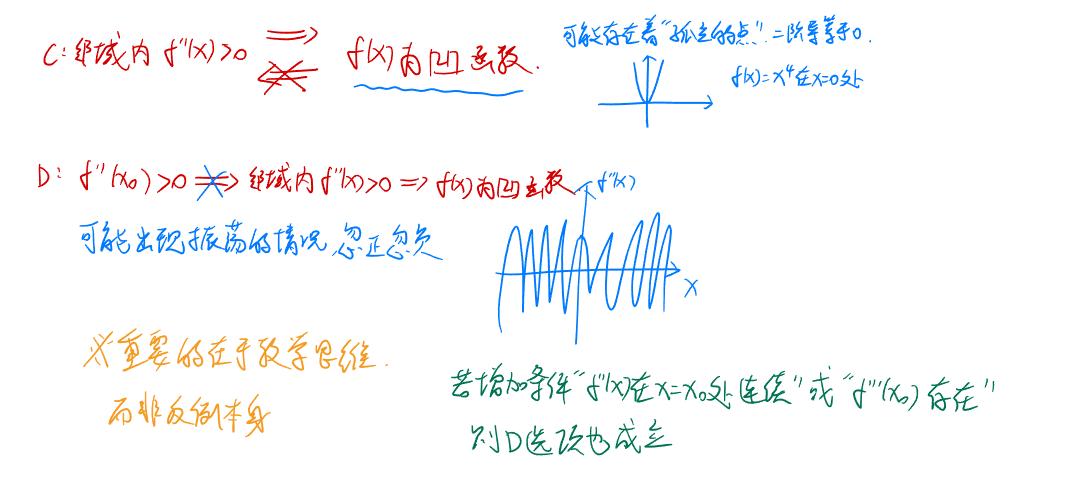 C: 邻域内 f''(x)>0 ⇒ f(x)为凹函数.
可能存在着"孤立的点". 二阶导等于0.
f(x)=x⁴在x=0处
D: f''(x₀)>0 ⇏ 邻域内 f''(x)>0 ⇒ f(x)为凹函数
f''(x)
可能出现振荡的情况,忽正忽负
x
※重要的在于数学思维.
而非反例本身
若增加条件"f''(x)在x=x₀处连续"或"f'''(x₀)存在"
则D选项也成立